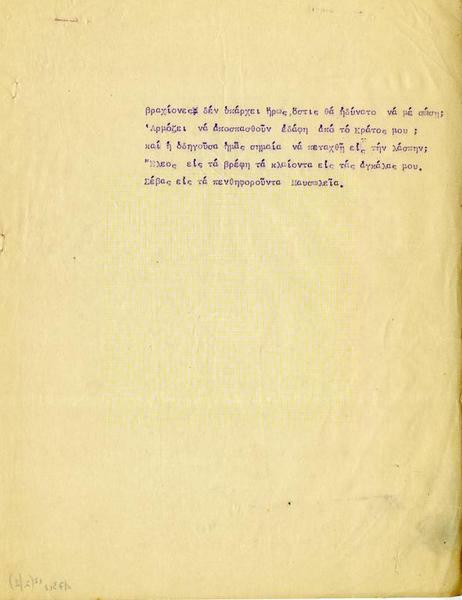 βραχίονες δέν ὑπάρχει ἥρως,ὅστις θά ἠδύνατο νά μέ σώσῃ;
Ἁρμόζει νά ἀποσπασθοῦν ἐδάφη ἀπό τό Κράτος μου ;
καί ἡ ὁδηγοῦσα ἡμᾶς σημαία νά πεταχθῇ εἰς τήν λάσπην;
Ἔλεος εἰς τά βρέφη τά κλαίοντα εἰς τάς ἀγκάλας μου.
Σέβας εἰς τά πενθηφοροῦντα Μαυσωλεῖα.